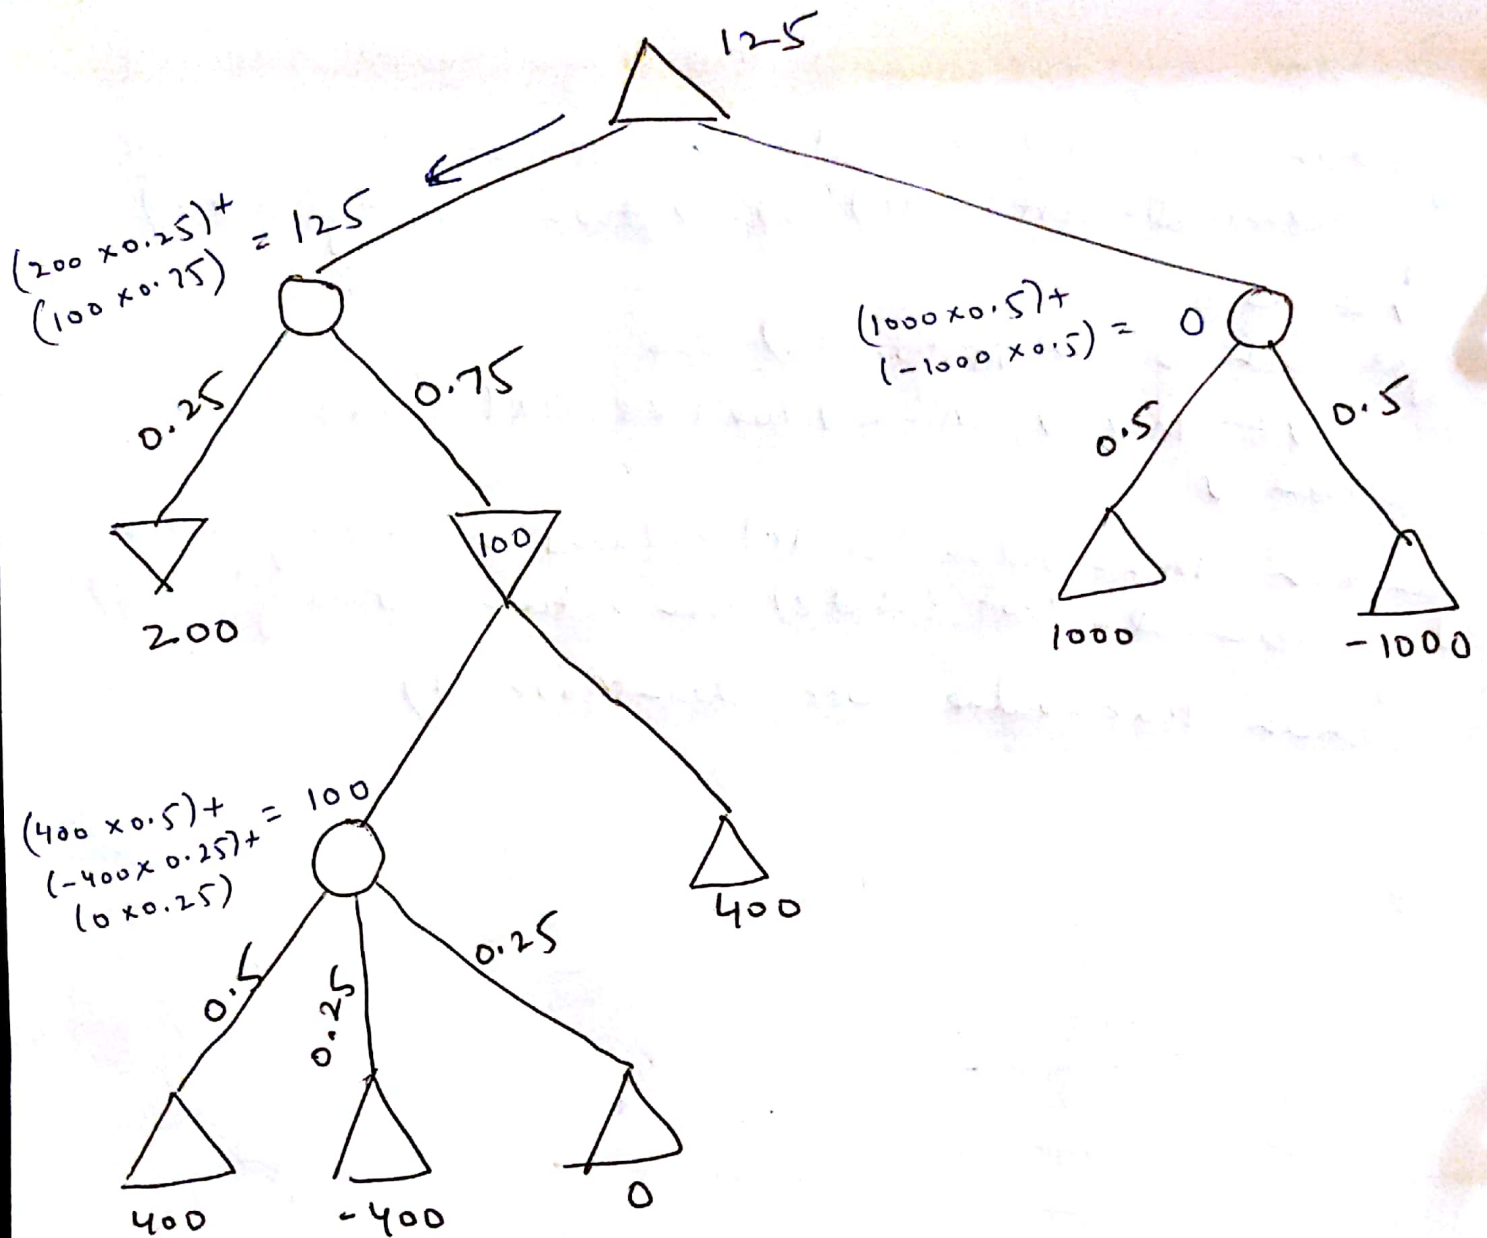 125
(200 x0.25)+
(100 x0.75)
= 125
(1000 x0.5)+
(-1000 x0.5) = 0
0.25
0.75
0.5
0.5
100
200
1000
-1000
(400 x0.5)+
(-400x 0.25)+
(0 x0.25)
= 100
400
0.5
0.25
0.25
400
-400
0